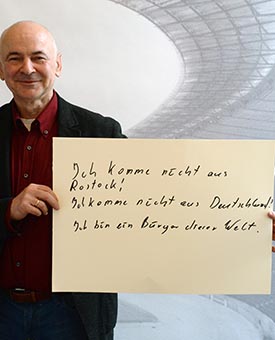 Ich komme nicht aus
Rostock!
Ich komme nicht aus Deutschland!
Ich bin ein Bürger dieser Welt.